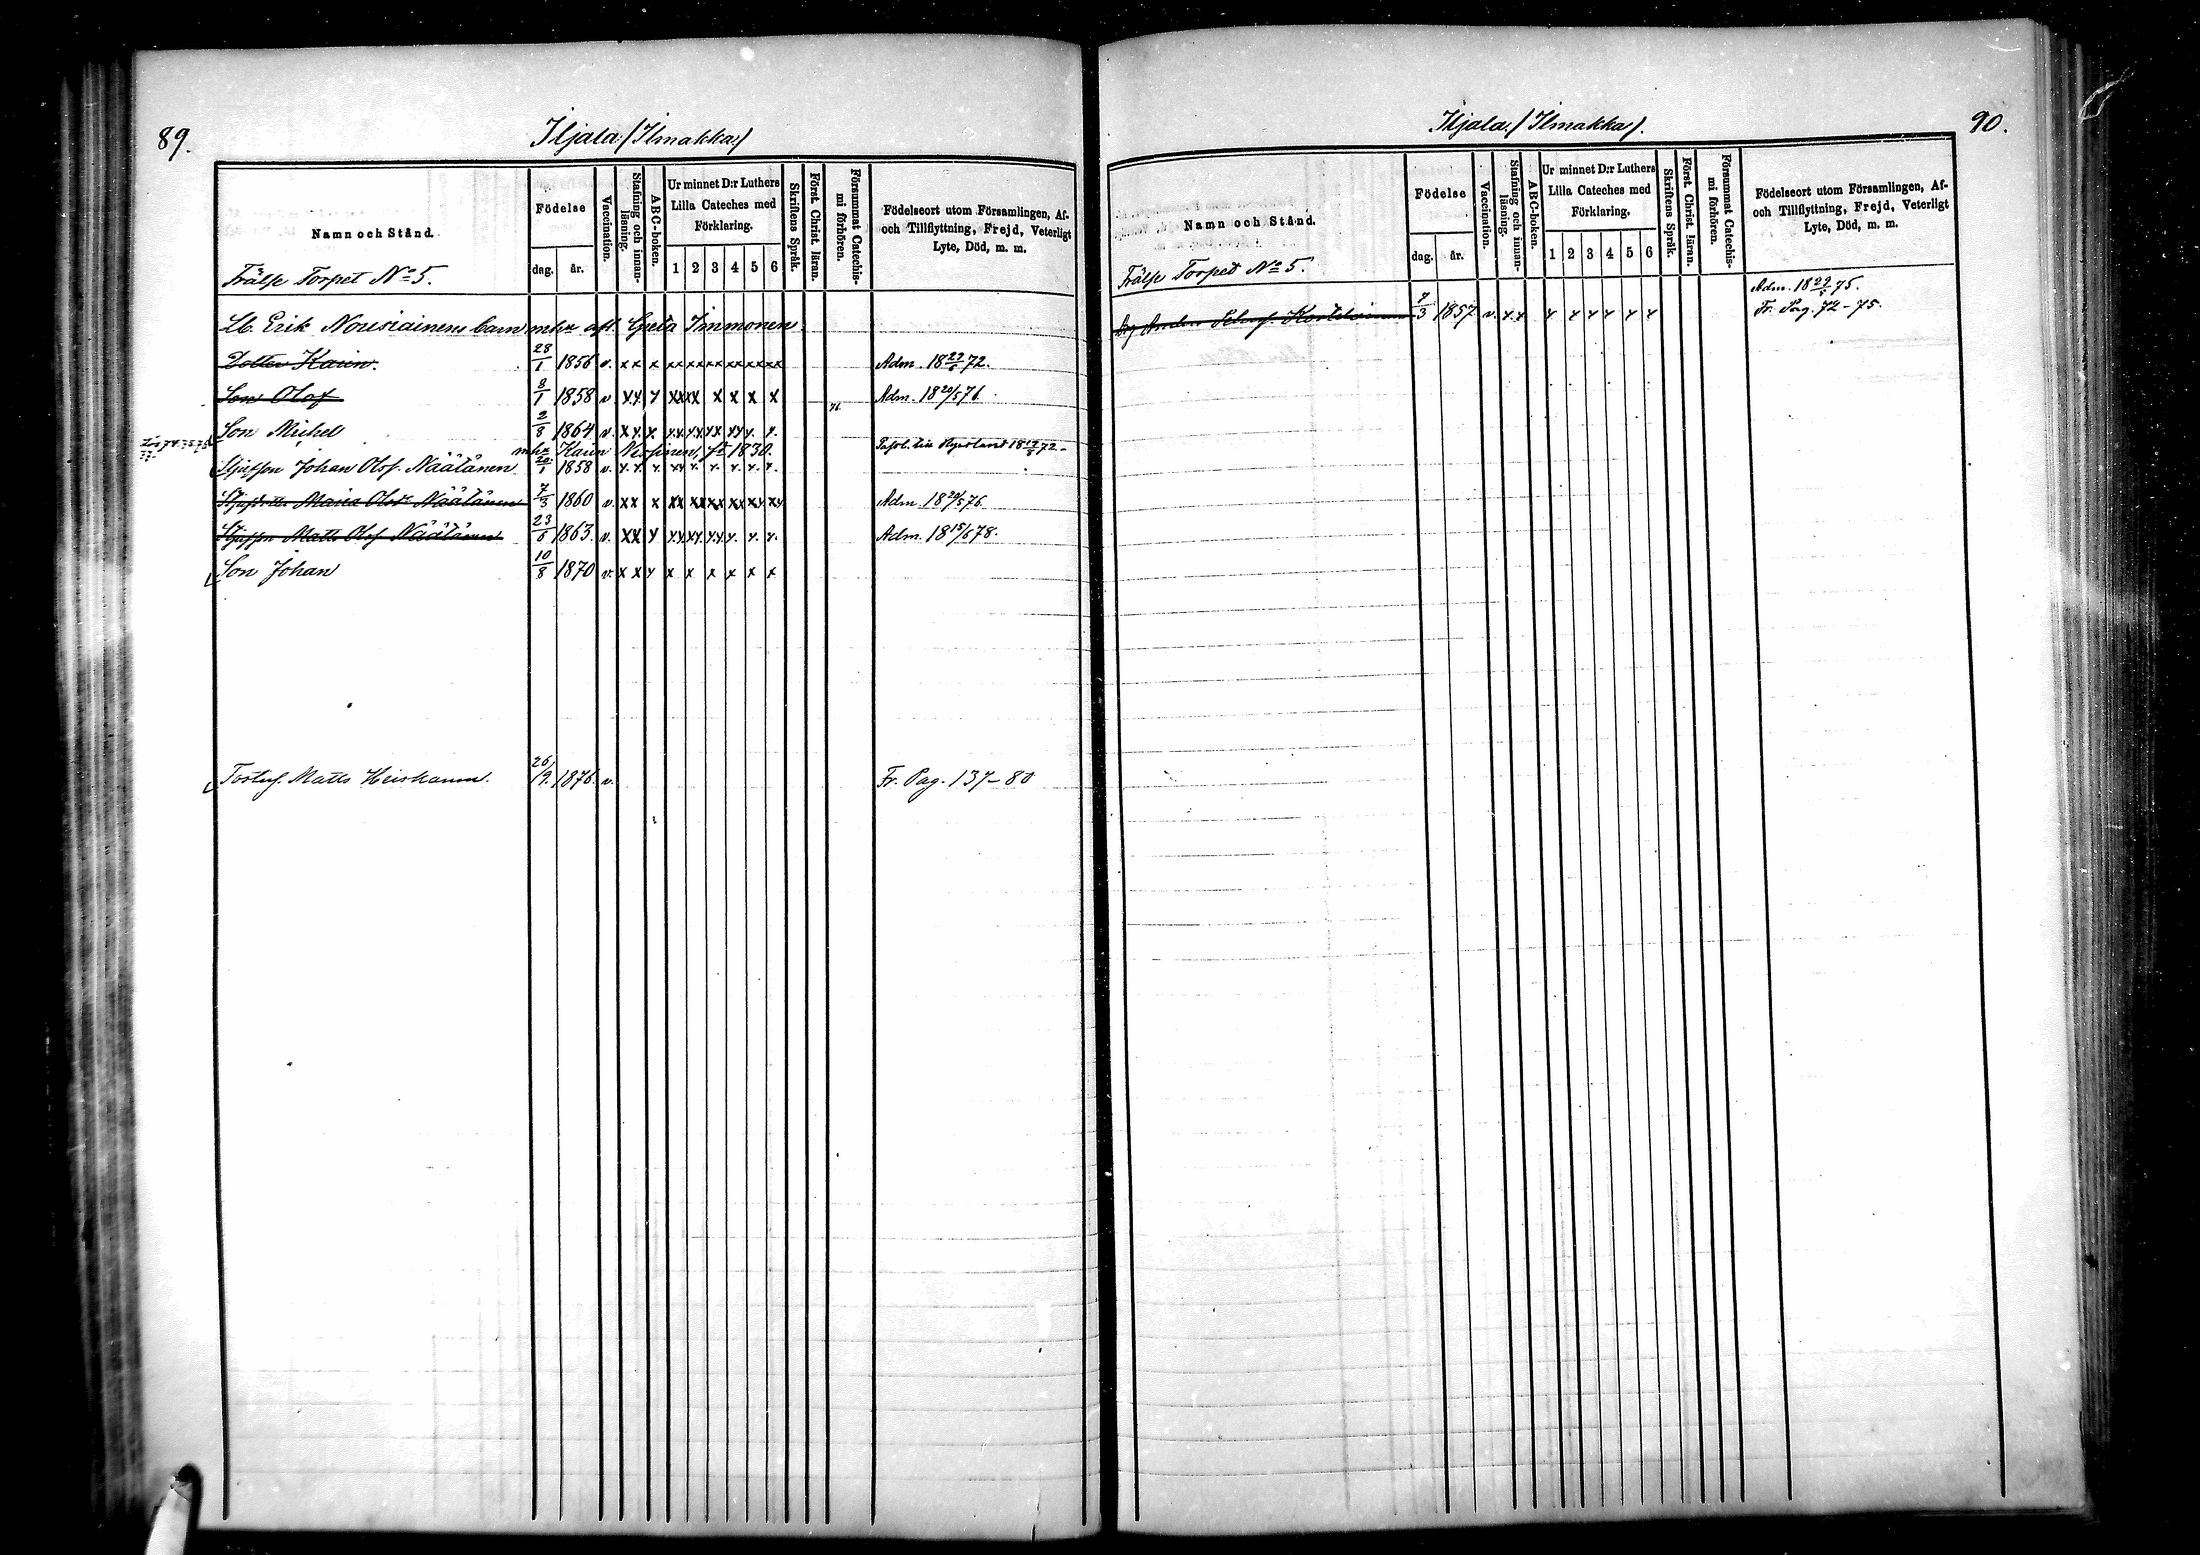 89.
Iljala (Ilmakka)
Namn och Stånd.
Födelse
dag.
år.
Vaccination.
Stafning och innanläsning.
ABC-boken.
Ur minnet D:r Luthers
Lilla Cateches med
Förklaring.
1 2 3 4 5 6
Skriftens Språk.
Först. Christ. läran.
Försummat Catechismi förhören.
Födelseort utom Församlingen, Af-
och Tillflyttning, Frejd, Veterligt
Lyte, Död, m. m.
Frälse Torpet No 5.
Lb. Erik Nousiainens barn mhu afl. Greta Immonen
Dotter Karin. 28/1 1856 v. x x x xx xx xx xx xx xx Adm. 18 72.
Son Olof 8/1 1858 v xx y xx xx x x x x Adm. 18 20/5 76
76.
Son Michel 2/8 1864 v. x x x. xx xx xx xx x. x.
Karin 1830.
Styfson Johan Olofs. Näätänen 20/1 1858 v. x x x xx x x. x. x. x. 72
Styfdotter Maria Olsdr Näätänen 7/3 1860 v. xx x xx xx xx xx xx xx Adm 18 20/5 76
Styfson Matts Olofs Näätänen 23/6 1863. v. xx y xx xx xx x. x. x. Adm. 18 15/6 78.
Son Johan 10/8 1870 v. x x y x x x x x x
Matts 26/9. 1876. v. Fr. Pag. 137-80
Iljala (Ilmakka).
90.
Namn och Stånd.
Födelse
dag.
år.
Vaccination.
Stafning och innanläsning.
ABC-boken.
Ur minnet D:r Luthers
Lilla Cateches med
Förklaring.
1 2 3 4 5 6
Skriftens Språk.
Först. Christ. läran.
Försummat Catechismi förhören.
Födelseort utom Församlingen, Af-
och Tillflyttning, Frejd, Veterligt
Lyte, Död, m. m.
Frälse Torpet No 5.
Adm. 18 75.
Anders 7/3 1857 v. x x y y y y y y Fr. Pag. 72-75.